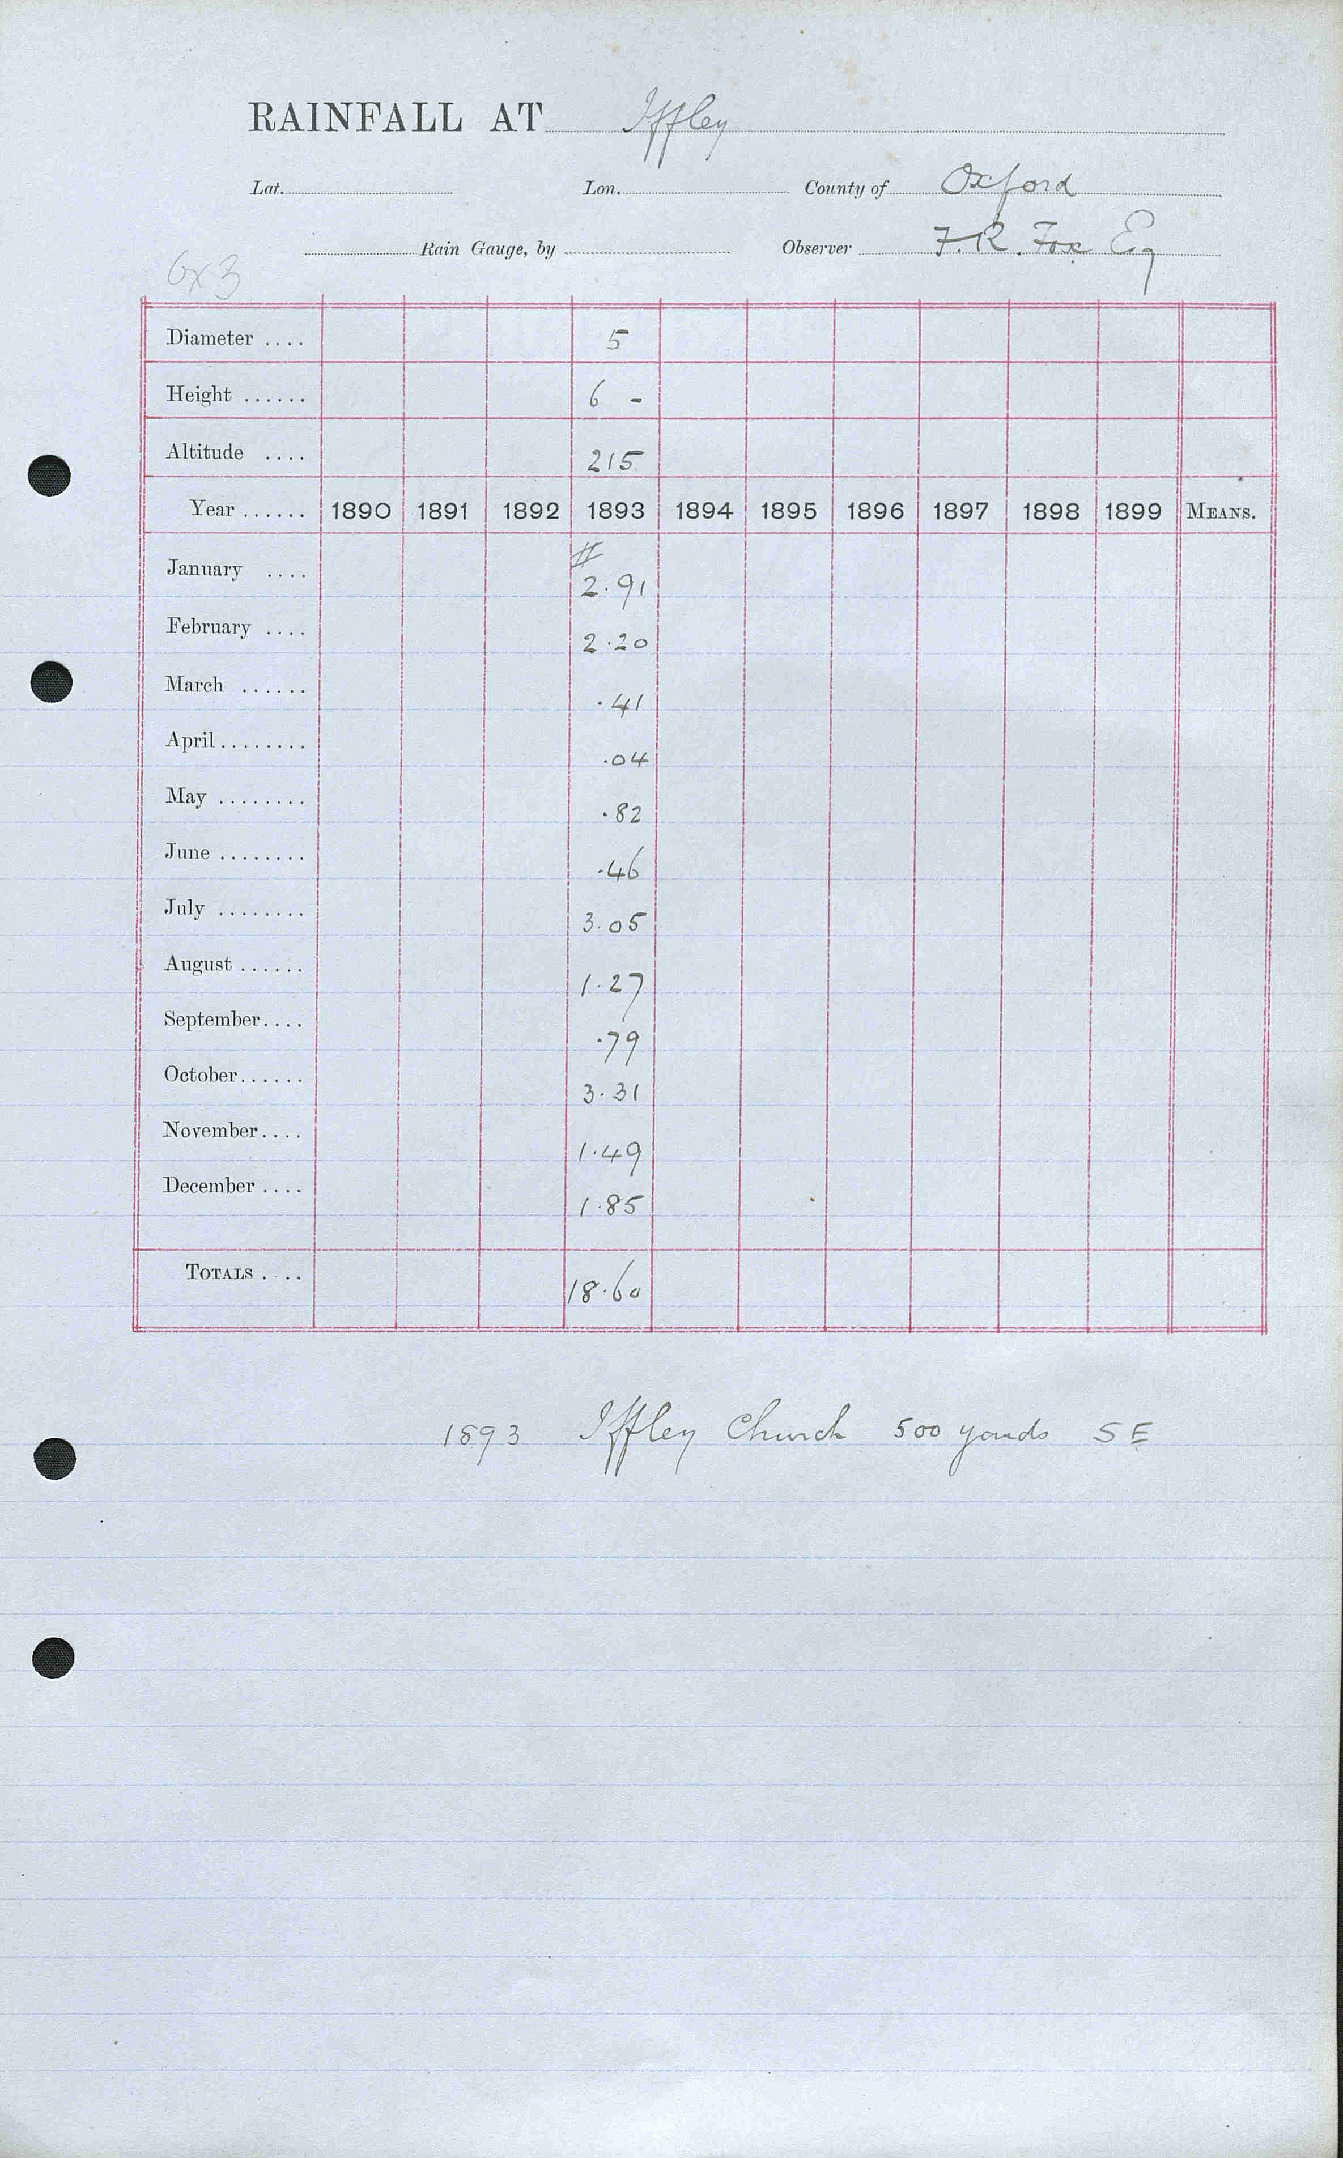 RAINFALL AT Iffley
Lat. Lon. County of Oxford
Rain Gauge, by Observer F.R. Fox Esq
Ox3
Diameter .... 5
Height ...... 6 -
Altitude .... 215
Year ...... 1890 1891 1892 1893 1894 1895 1896 1897 1898 1899 MEANS.
#
January .... 2.91
February .... 2.20
March ...... .41
April........ .04
May ........ .82
June ........ .46
July ........ 3.05
August ...... 1.27
September.... .79
October...... 3.31
November.... 1.49
December .... 1.85
TOTALS .... 18.60
1893 Iffley Church 500 yards SE